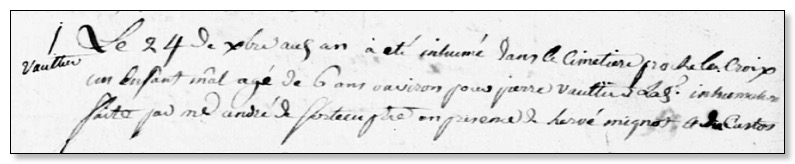 1 Le 24 de xbre aud an a eté inhumé dans le Cimetiere proche la Croix
Vautier
un Enfant mâl agé de 6 ans environ pour pierre vautier inhumation
faite par me andré de pbre en presence de hervé mignot & du Custos